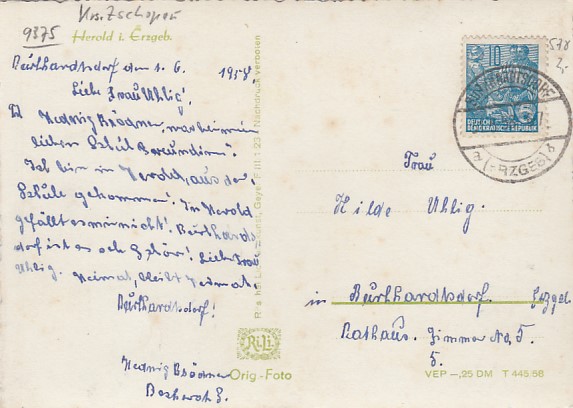 Krs. Zschopau
9375
Herold i. Erzgeb.
Burkhardtsdorf den 1. 6. 1958.
Liebe Frau Uhlig!
Hedwig Brödner, war bei mir
lieben Schul
Ich bin in Herold, aus der
Schule gekommen! In Herold
gefällt es mir nicht! Burkhards
dorf ist es och Schön! Liebe Frau
Uhlig. Heimat, bleibt Heimat.
Burkhardtsdorf!
Hedwig Brödner
Orig.-Foto
Nachdruck verboten
RiLi
578
2,-
10
DEUTSCHE
DEMOKRATISCHE REPUBLIK
BURKHARDTSDORF
a (ERZGEB) b
Frau
Hilde Uhlig.
in Burkhardtsdorf. Erzgeb.
Rathaus. Zimmer No, 5.
5.
VEP —,25 DM T 445/58